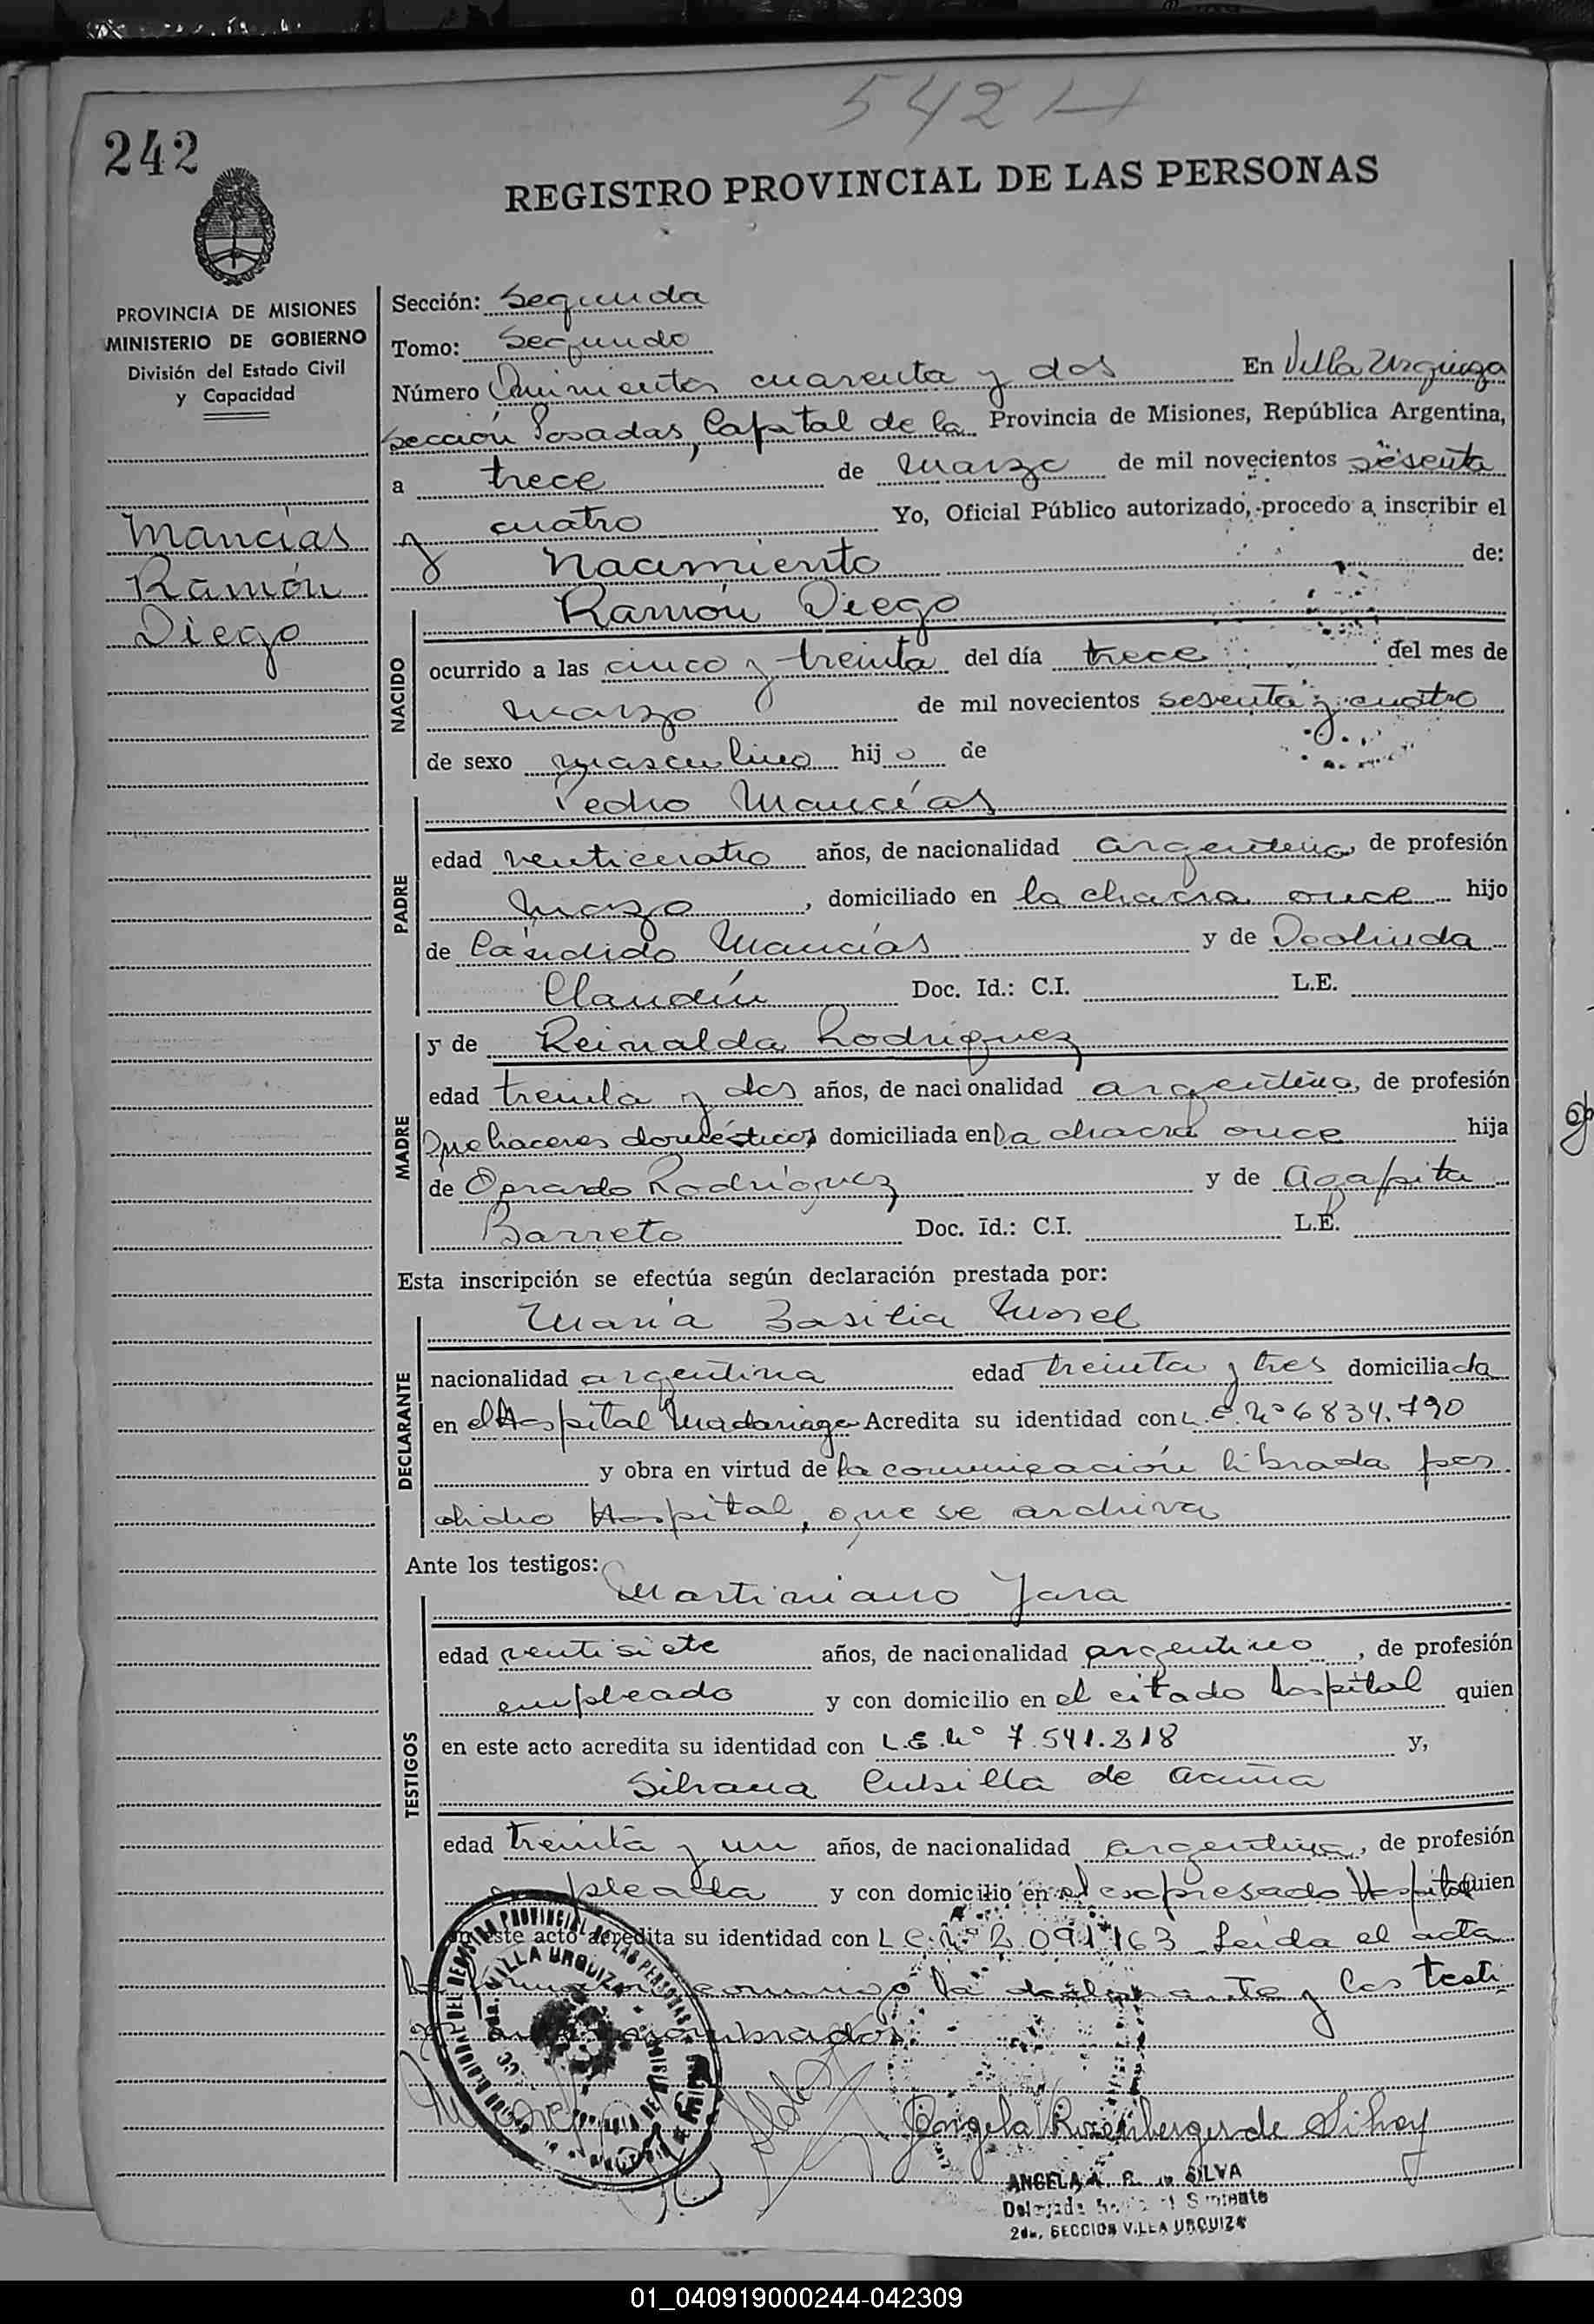 542 H
242
REGISTRO PROVINCIAL DE LAS PERSONAS
PROVINCIA DE MISIONES
MINISTERIO DE GOBIERNO
División del Estado Civil
y Capacidad
Mancías
Ramón
Diego
Sección: Segunda
Tomo: Segundo
Número Quinientos cuarenta y dos En Villa Urquiza
Sección Posadas, Capital de la Provincia de Misiones, República Argentina,
a trece de Marzo de mil novecientos sesenta
y cuatro Yo, Oficial Público autorizado, procedo a inscribir el
Nacimiento de:
Ramón Diego
NACIDO
ocurrido a las cinco y treinta del día trece del mes de
marzo de mil novecientos sesenta y cuatro
de sexo masculino hijo de
PADRE
Pedro Mancías
edad venticuatro años, de nacionalidad argentina de profesión
mozo, domiciliado en la chacra once hijo
de Cándido Mancías y de Deolinda
Claudín Doc. Id.: C.I. L.E.
MADRE
y de Reinalda Rodríguez
edad treinta y dos años, de nacionalidad argentina, de profesión
Quehaceres domésticos domiciliada en La chacra once hija
de Rodríguez y de Agapita
Barreto Doc. Id.: C.I. L.E.
Esta inscripción se efectúa según declaración prestada por:
DECLARANTE
María Basilia Morel
nacionalidad argentina edad treinta y tres domiciliada
en el Hospital Madariaga Acredita su identidad con L.C. Nº 6834.790
y obra en virtud de la comunicación librada por
dicho Hospital, que se archiva
Ante los testigos:
TESTIGOS
Martiniano Jara
edad ventisiete años, de nacionalidad argentino, de profesión
empleado y con domicilio en el citado Hospital quien
en este acto acredita su identidad con L.E. Nº 7.541.818 y,
Silvana Cubilla de Acuña
edad treinta y un años, de nacionalidad argentina, de profesión
empleada y con domicilio en el expresado Hospital quien
en este acto acredita su identidad con L.C. Nº 2.091.163 Leída el acta
conmigo la declarante y los testi
nombrados
Angela Rosenberger de Silva
ANGELA A. R. de SILVA
2da. SECCION VILLA URQUIZA
01_040919000244-042309